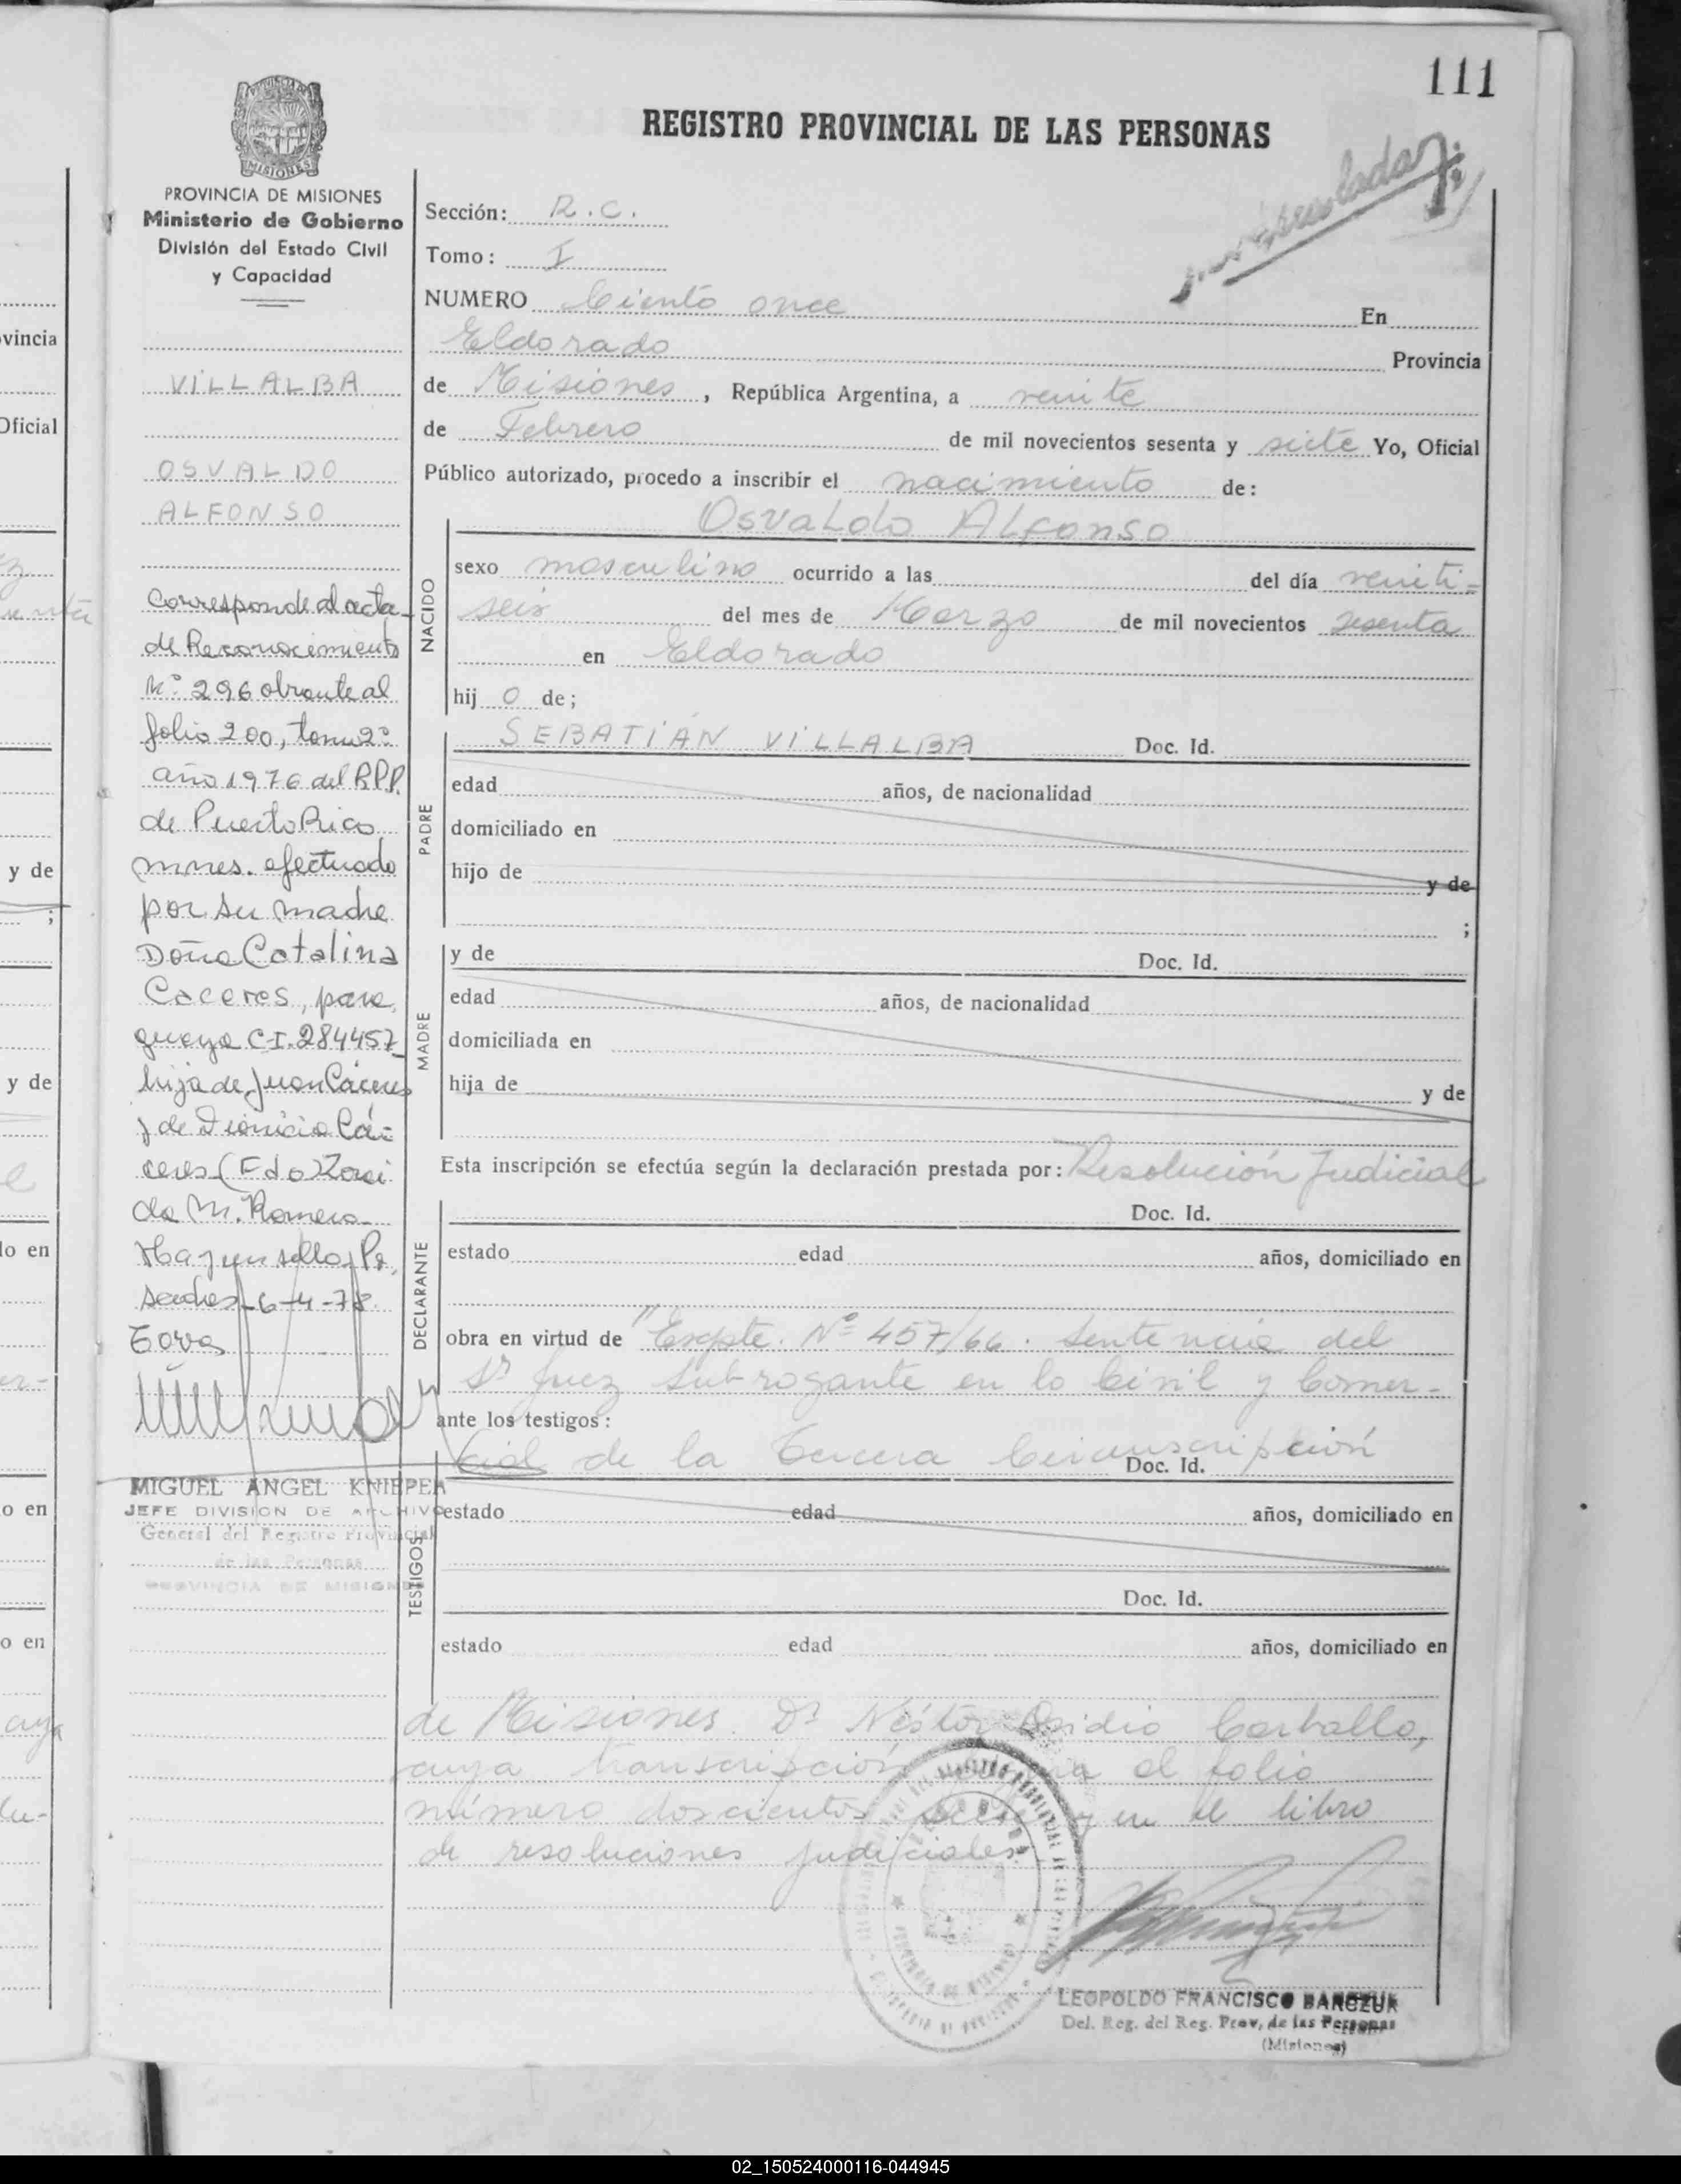 111
REGISTRO PROVINCIAL DE LAS PERSONAS
MISIONES
PROVINCIA DE MISIONES
Ministerio de Gobierno
División del Estado Civil
y Capacidad
VILLALBA
OSVALDO
ALFONSO
Corresponde al acta
de Reconocimiento
Nº 296 obrante al
folio 200, tomo 2º
año 1976 del R.P.P.
de Puerto Rico
mnes. efectuado
por su madre
Doña Catalina
Caceres, para
guaya C.I. 284457
hija de Juan Cáceres
y de Dionicia Cá-
ceres (Fdo) Zorai
da M. Romero
Hay un sello, Po
sadas 6-4-78.
MIGUEL ANGEL KNIEPER
JEFE DIVISION DE ARCHIVO
General del Registro Provincial
de las Personas
PROVINCIA DE MISIONES
Sección: R.C.
Tomo: I
NUMERO Ciento once En
Eldorado Provincia
de Misiones, República Argentina, a veinte
de Febrero de mil novecientos sesenta y siete Yo, Oficial
Público autorizado, procedo a inscribir el nacimiento de:
Osvaldo Alfonso
NACIDO
sexo masculino ocurrido a las del día veinti-
seis del mes de Marzo de mil novecientos sesenta
en Eldorado
hijo de;
PADRE
SEBATIÁN VILLALBA Doc. Id.
edad años, de nacionalidad
domiciliado en
hijo de y de
;
MADRE
y de Doc. Id.
edad años, de nacionalidad
domiciliada en
hija de y de
Esta inscripción se efectúa según la declaración prestada por: Resolución Judicial
DECLARANTE
Doc. Id.
estado edad años, domiciliado en
obra en virtud de "Expte. Nº 457/66. Sentencia del
Sr Juez Subrogante en lo Civil y Comer-
ante los testigos:
cial de la Tercera Circunscripción
Doc. Id.
TESTIGOS
estado edad años, domiciliado en
Doc. Id.
estado edad años, domiciliado en
de Misiones. Dr Néstor Osidio Carballo,
cuya transcripción al folio
número doscientos en el libro
de resoluciones judiciales.
LEOPOLDO FRANCISCO BARCZUK
Del. Reg. del Reg. Prov. de las Personas
(Misiones)
vincia
Oficial
y de
;
y de
lo en
o en
o en
02_150524000116-044945